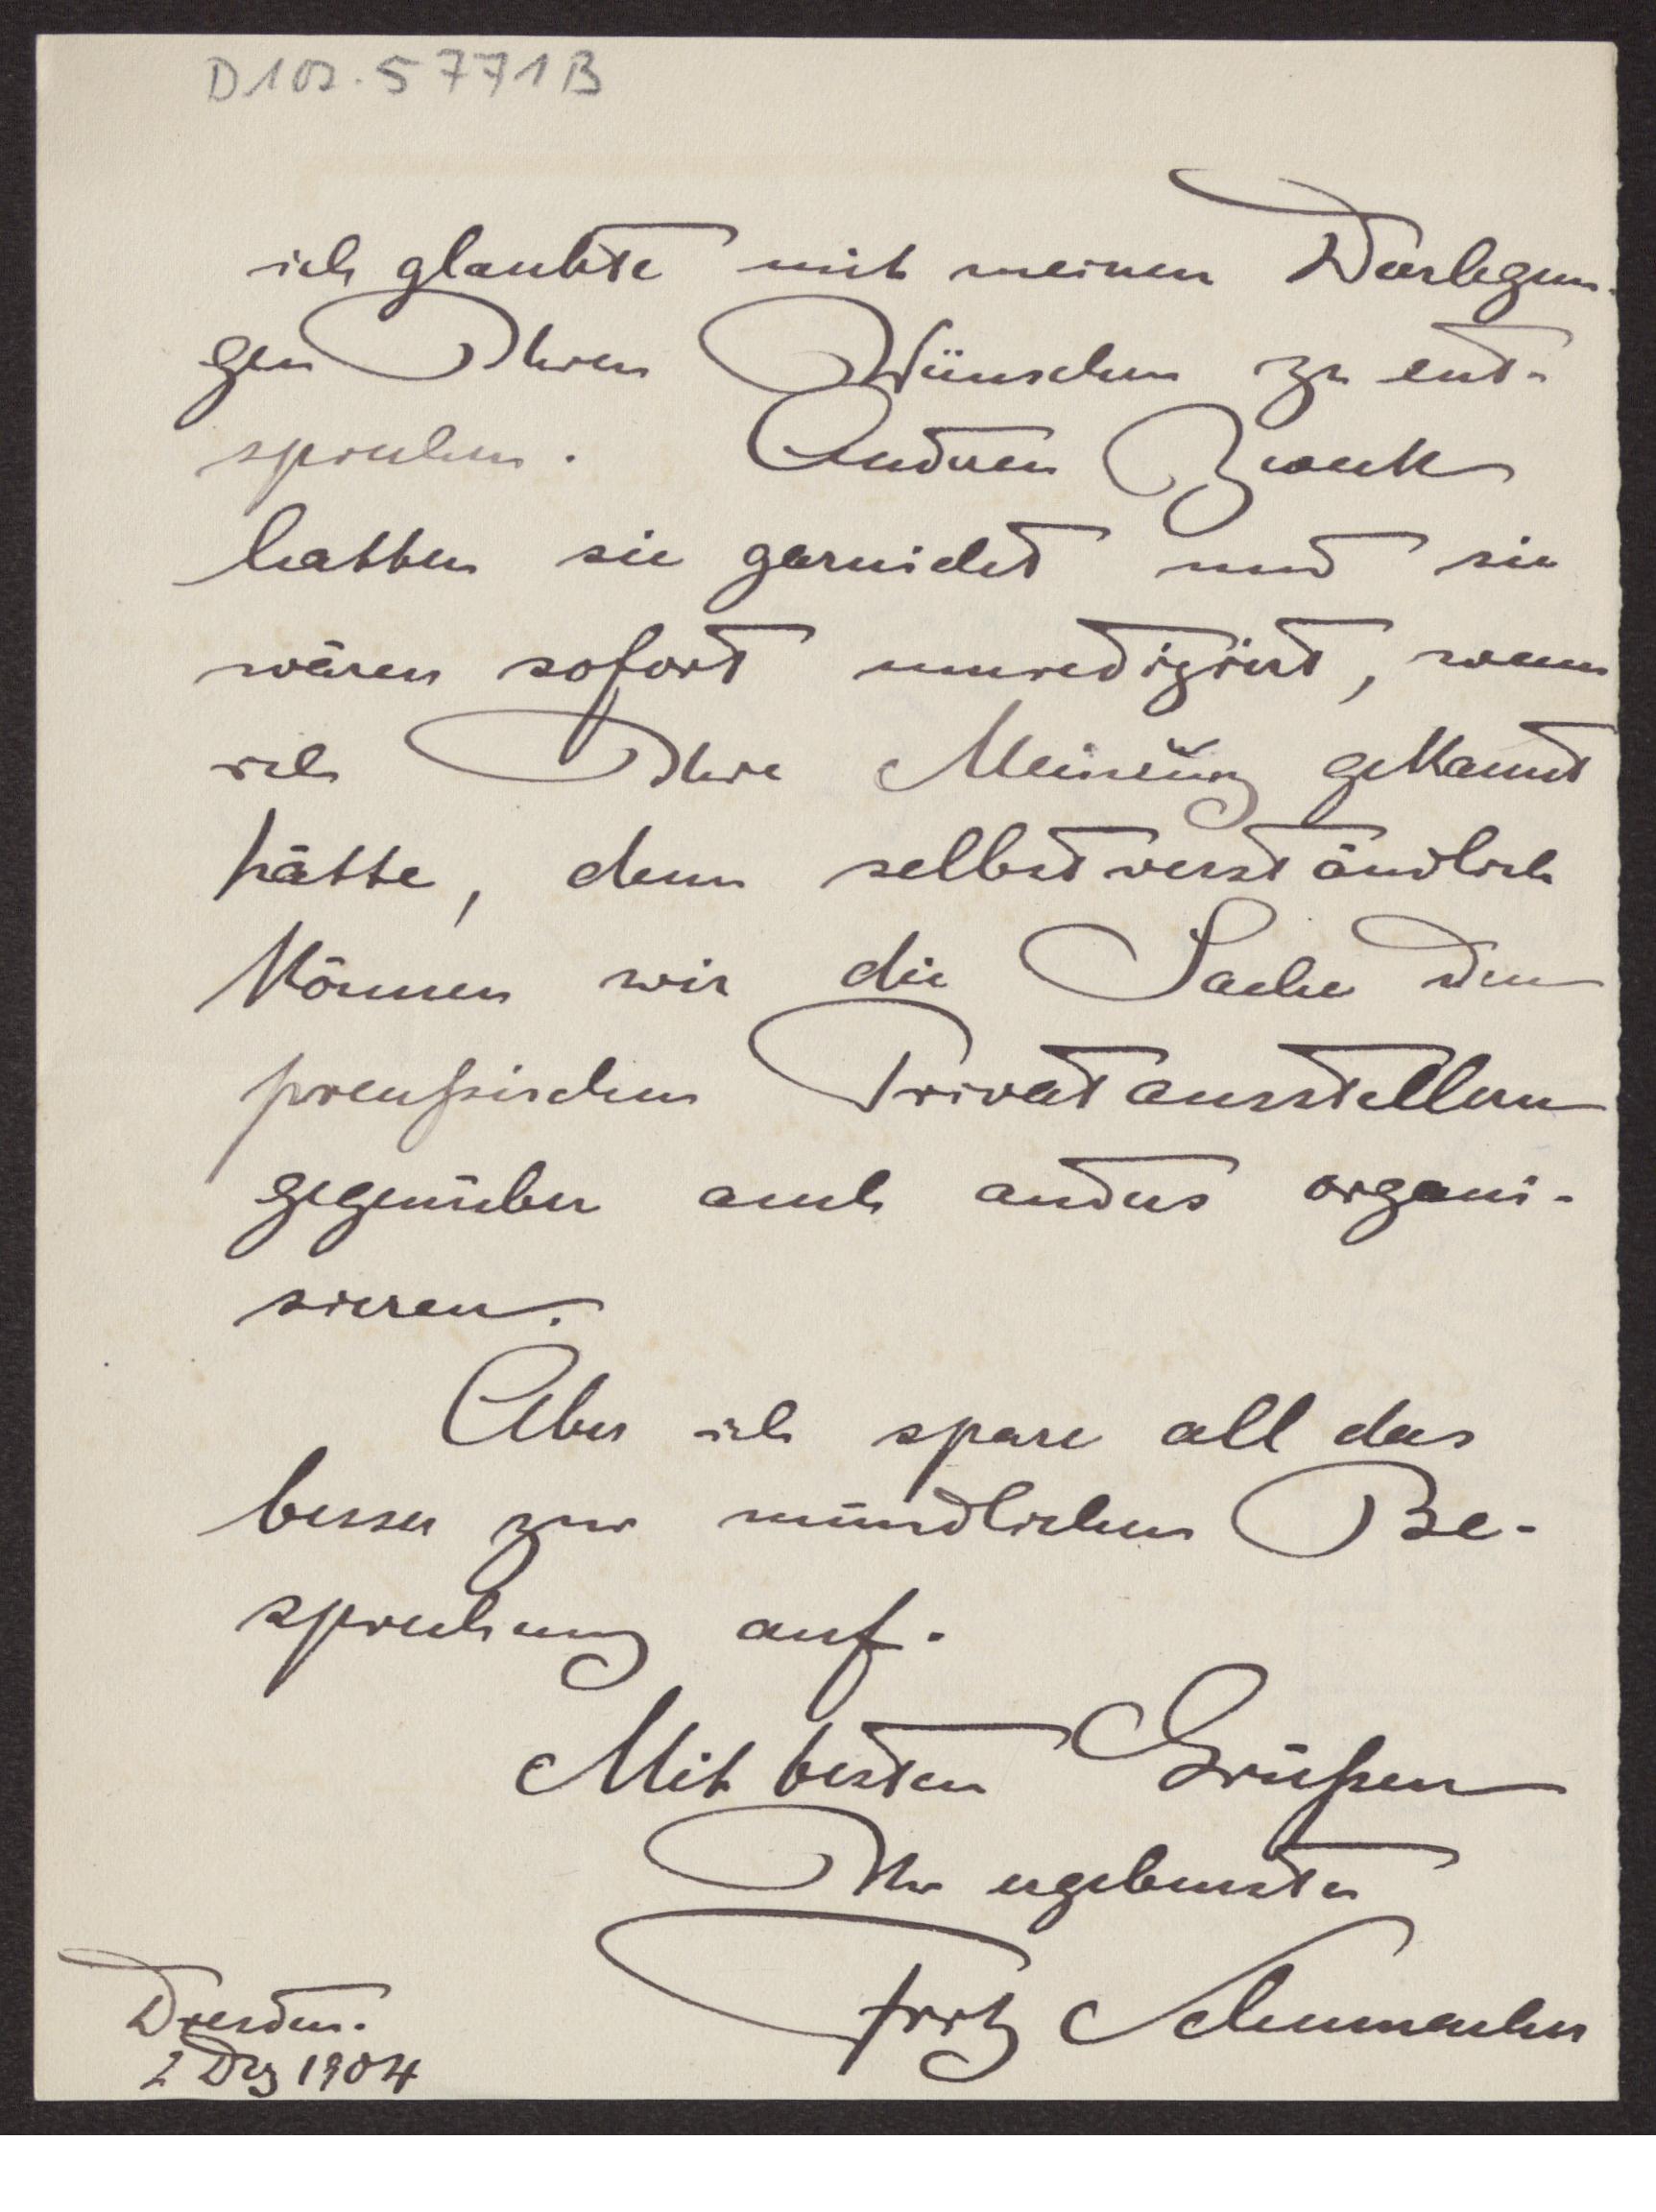 D102.5771B
ich glaubte mit meinen Darlegun-
gen Ihren Wünschen zu ent-
sprechen. Andren Zweck
hatten sie garnicht und sie
wären sofort umredigirt, wenn
ich Ihre Meinung gekannt
hätte, denn selbstverständlich
können wir die Sache den
preußischen Privatausstellern
gegenüber auch anders organi-
sieren.
Aber ich spare all das
besser zur mündlichen Be-
sprechung auf.
Mit besten Grüßen
Ihr ergebenster
Fritz Schumacher
Dresden.
2 Dez 1904